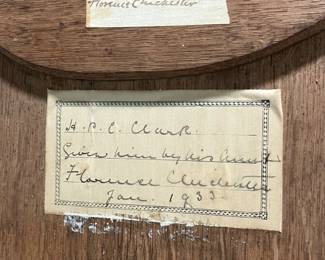 Florence Chichester
H. P. C. Clark.
Given him by his Aunt
Florence Chichester
Jan. 1933